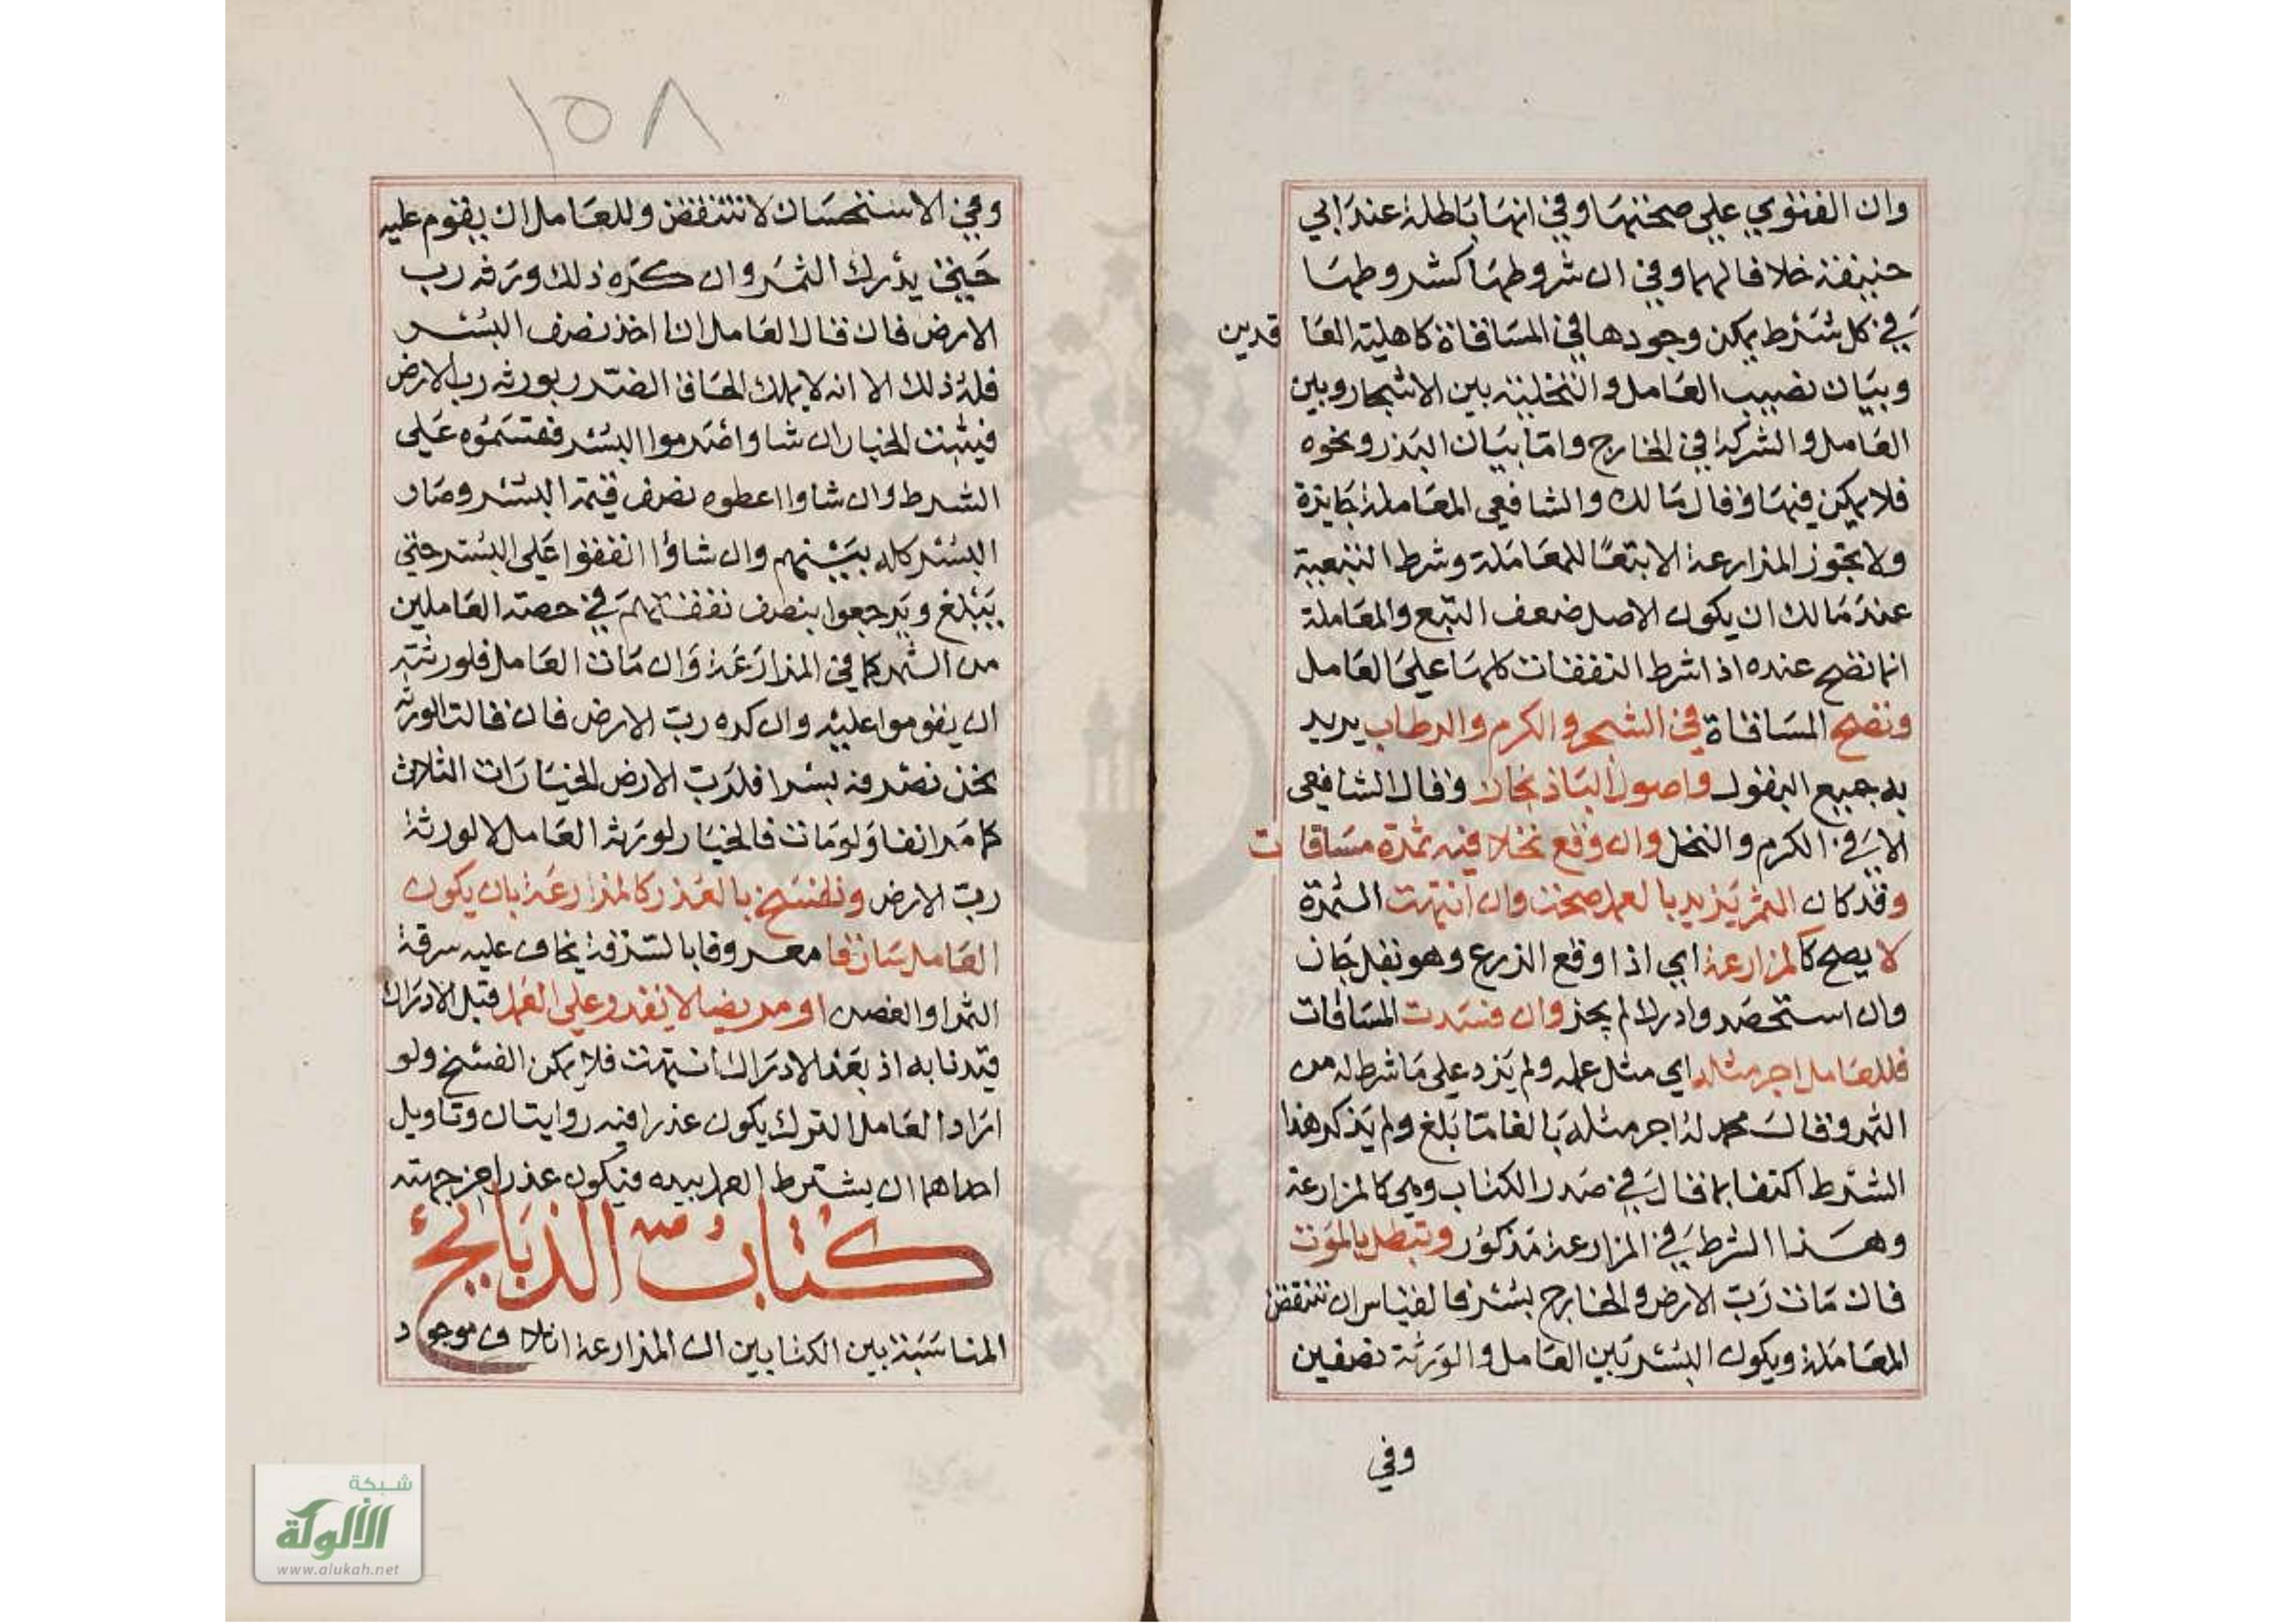 وان الفتوي علي صحتها وفي انها باطلة عند ابي
حنيفة خلافا لهما وفي ان شروطها كشروطها
في كل شرط يمكن وجودها في المساقاة كاهلية العاقدين
وبيان نصيب العامل والتخلية بين الاشجار وبين
العامل والشركة في الخارج واما بيان البذر ونحوه
فلا يمكن فيها وقال مالك والشافعي المعاملة جايزة
ولا تجوز المزارعة الا تبعا للمعاملة وشرط التبعية
عند مالك ان يكون الاصل ضعف التبع والمعاملة
انما تصح عنده اذا شرط النفقات كلها علي العامل
وتصح المساقاة في الشجر والكرم والرطاب يريد
به جميع البقول واصول الباذنجان وقال الشافعي
الا في الكرم والنخل وان وقع نخلا فيه ثمرة مساقات
وقد كان الثمر يزيد بالعمل صحت وان انتهت الثمرة
لا يصح كالمزارعة اي اذا وقع الزرع وهو بقل جاز
وان استحصد وادرك لم يجز وان فسدت المساقات
فللعامل اجر مثله اي مثل عمله ولم يزد علي ما شرط له من
الثمر وقال محمد له اجر مثله بالغا ما بلغ ولم يذكر هذا
الشرط اكتفا بما قال في صدر الكتاب وهي كالمزارعة
وهذا الشرط في المزارعة مذكور وتبطل بالموت
فان مات رب الارض والخارج بسر فالقياس ان تنتقض
المعاملة ويكون البسر بين العامل والورثة نصفين
وفي
١٥٨
وفي الاستحسان لا تنتقض وللعامل ان يقوم عليه
حتي يدرك الثمر وان كره ذلك ورثة رب
الارض فان قال العامل انا اخذ نصف البسر
فله ذلك الا انه لا يملك الحاق الضرر بورثة رب الارض
فيثبت الخيار ان شاوا صرموا البسر فقتسموه علي
الشرط وان شاوا اعطوه نصف قيمة البسر وصار
البسر كله بينهم وان شاؤا انفقوا علي البسر حتي
يبلغ ويرجعوا بنصف نفقتهم في حصة العاملين
من الثمر كما في المزارعة وان مات العامل فلورثته
ان يقوموا عليه وان كره رب الارض فان قالت الورثة
نحن نصرفه بسرا فلرب الارض الخيارات الثلاث
كما مر انفا ولو مات فالخيار لورثة العامل لا لورثة
رب الارض وتفسخ بالعذر كالمزارعة بان يكون
العامل سارقا معروفا بالسرقة يخاف عليه سرقة
الثمر او الغصن او مريضا لا يقدر علي العمل قبل الادراك
قيدنا به اذ بعد الادراك انتهت فلا يمكن الفسخ ولو
اراد العامل الترك يكون عذرا فيه روايتان وتاويل
احداهما ان يشترط العمل بيده فيكون عذرا من جهته
كتاب الذبايح
المناسبة بين الكتابين ان المزارعة اتلاف موجود
شبكة
الألوكة
www.alukah.net